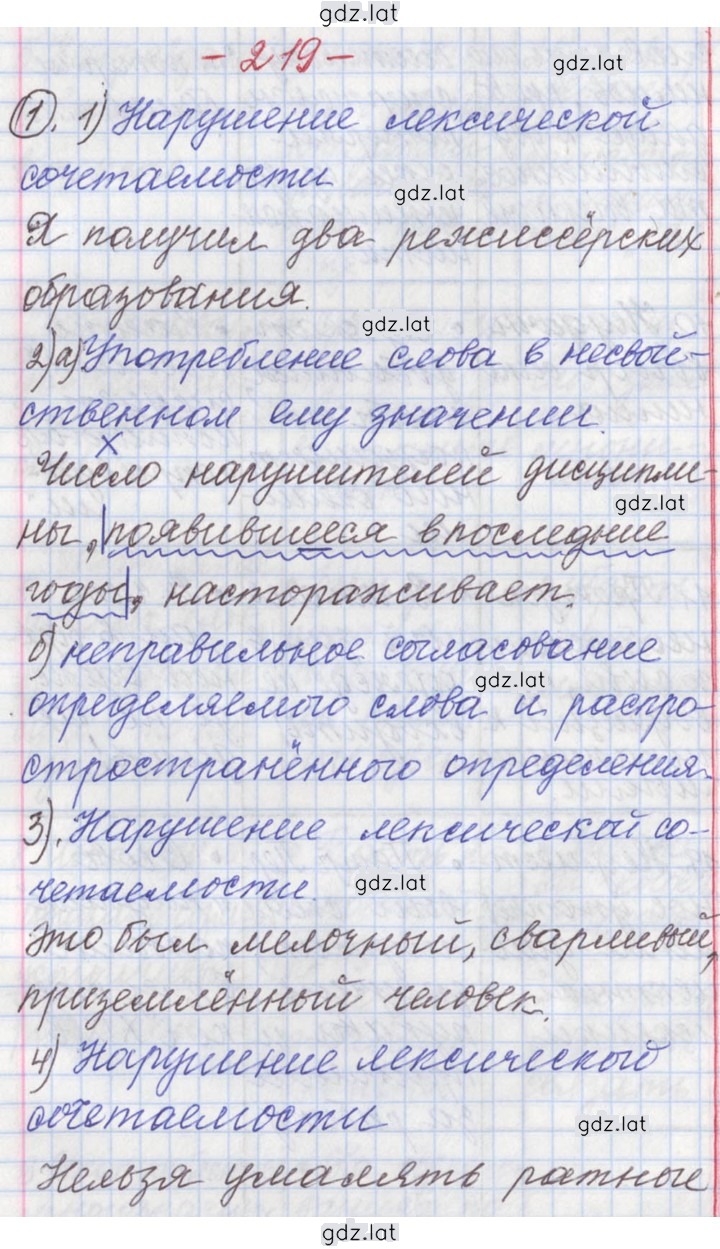 gdz.lat
- 219 -
gdz.lat
1. 1) Нарушение лексической
сочетаемости
gdz.lat
Я получил два режиссёрских
образования.
gdz.lat
2) а) Употребление слова в несвой-
ственном ему значении.
х
Число нарушителей дисципли-
gdz.lat
ны, появившееся в последние
годы, настораживает.
б) неправильное согласование
gdz.lat
определяемого слова и распро
странённого определения.
3). Нарушение лексической со-
четаемости.
gdz.lat
Это был мелочный, сварливый,
приземлённый человек.
4) Нарушение лексической
сочетаемости
gdz.lat
Нельзя умалять ратные
gdz.lat